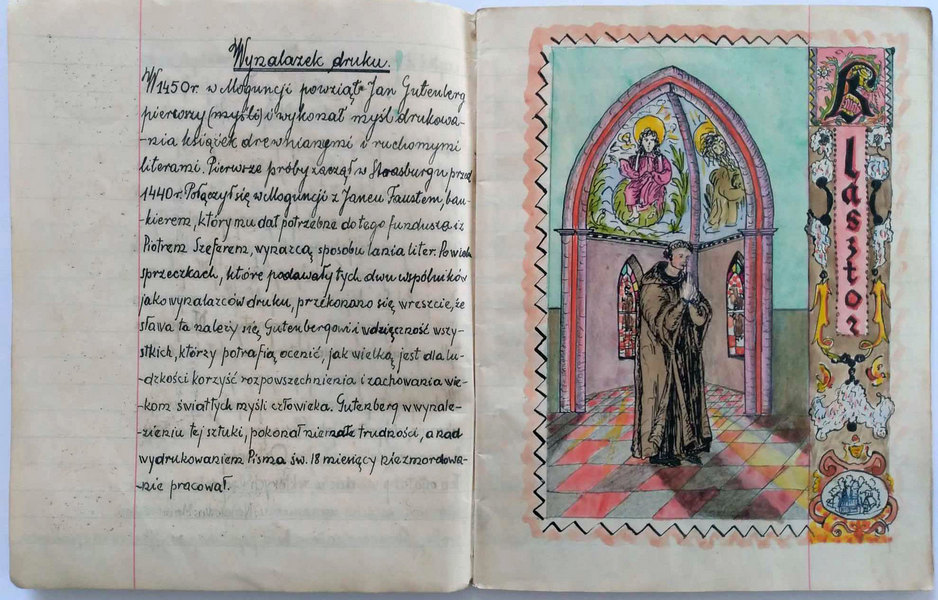 Wynalazek druku.
W 1450 r. w Moguncji powziął Jan Gutenberg
pierwszy (myśl) i wykonał myśl drukowa-
-nia książek drewnianymi i ruchomymi
literami. Pierwsze próby zaczął w Strasburgu przed
1440 r. Połączył się w Moguncji z Janem Faustem, ban-
kierem, który mu dał potrzebne do tego fundusze i z
Piotrem Szeferem, wynazcą sposobu lania liter. Po wielu
sprzeczkach, które podawały tych dwu wspólników
jako wynalazców druku, przekonano się wreszcie, że
sława ta należy się Gutenbergowi i wdzięczność wszy-
stkich, którzy potrafią ocenić, jak wielką jest dla lu-
-dzkości korzyść rozpowszechnienia i zachowania wie-
kom światłych myśli człowieka. Gutenberg w wynale-
-zieniu tej sztuki, pokonał niemałe trudności, a nad
wydrukowaniem Pisma św. 18 miesięcy niezmordowa-
-nie pracował.
Klasztor